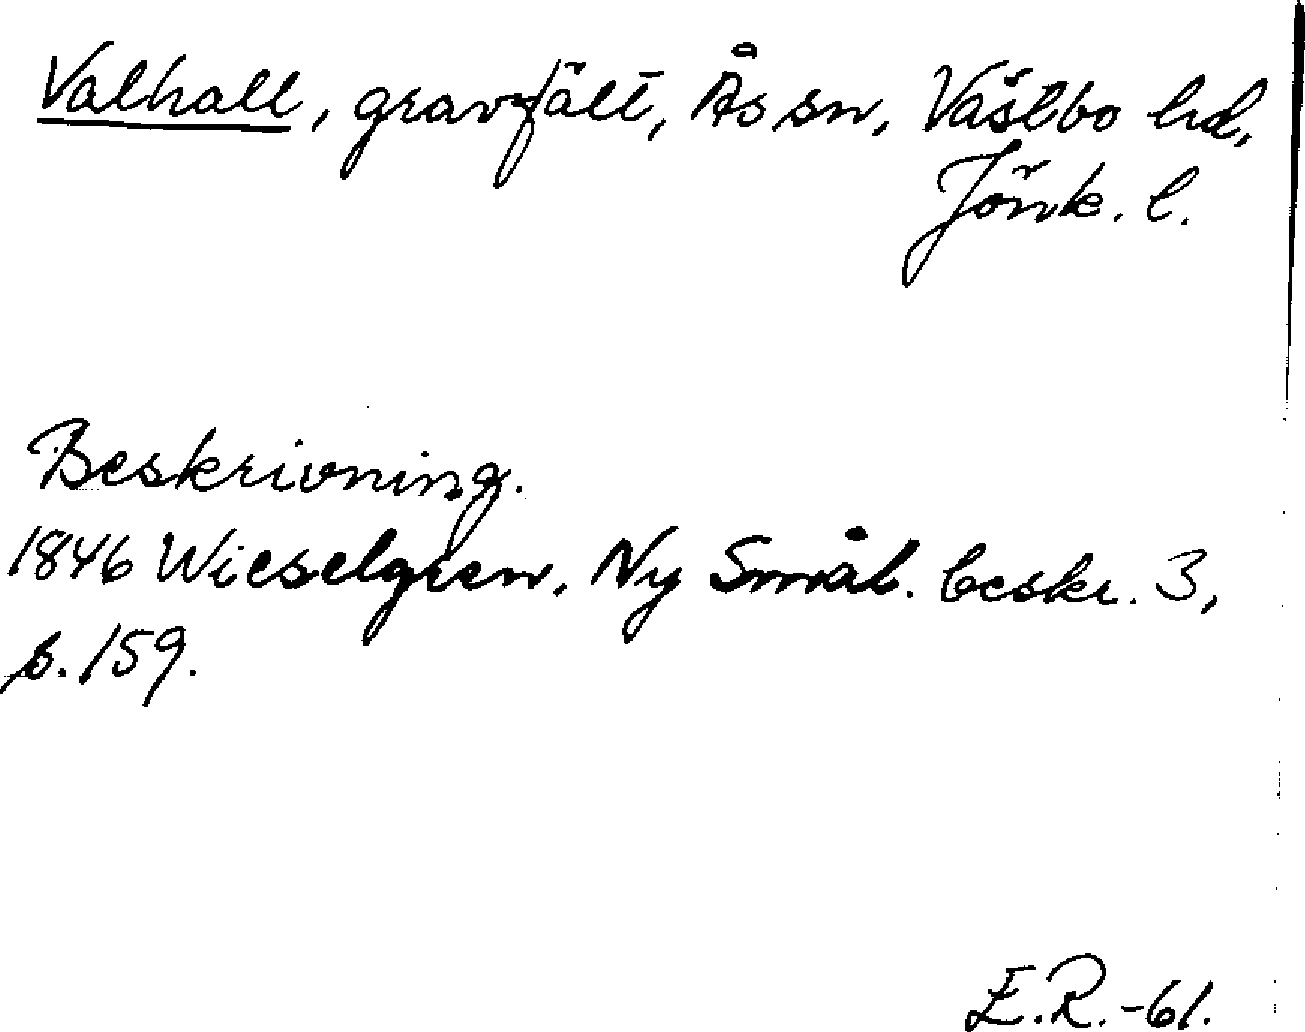 Valhall, gravfält, Ås sn, Västbo hd,
Jönk. l.
Beskrivning.
1846 Wieselgren, Ny Smål. beskr. 3,
s. 159.
E.R. -61.